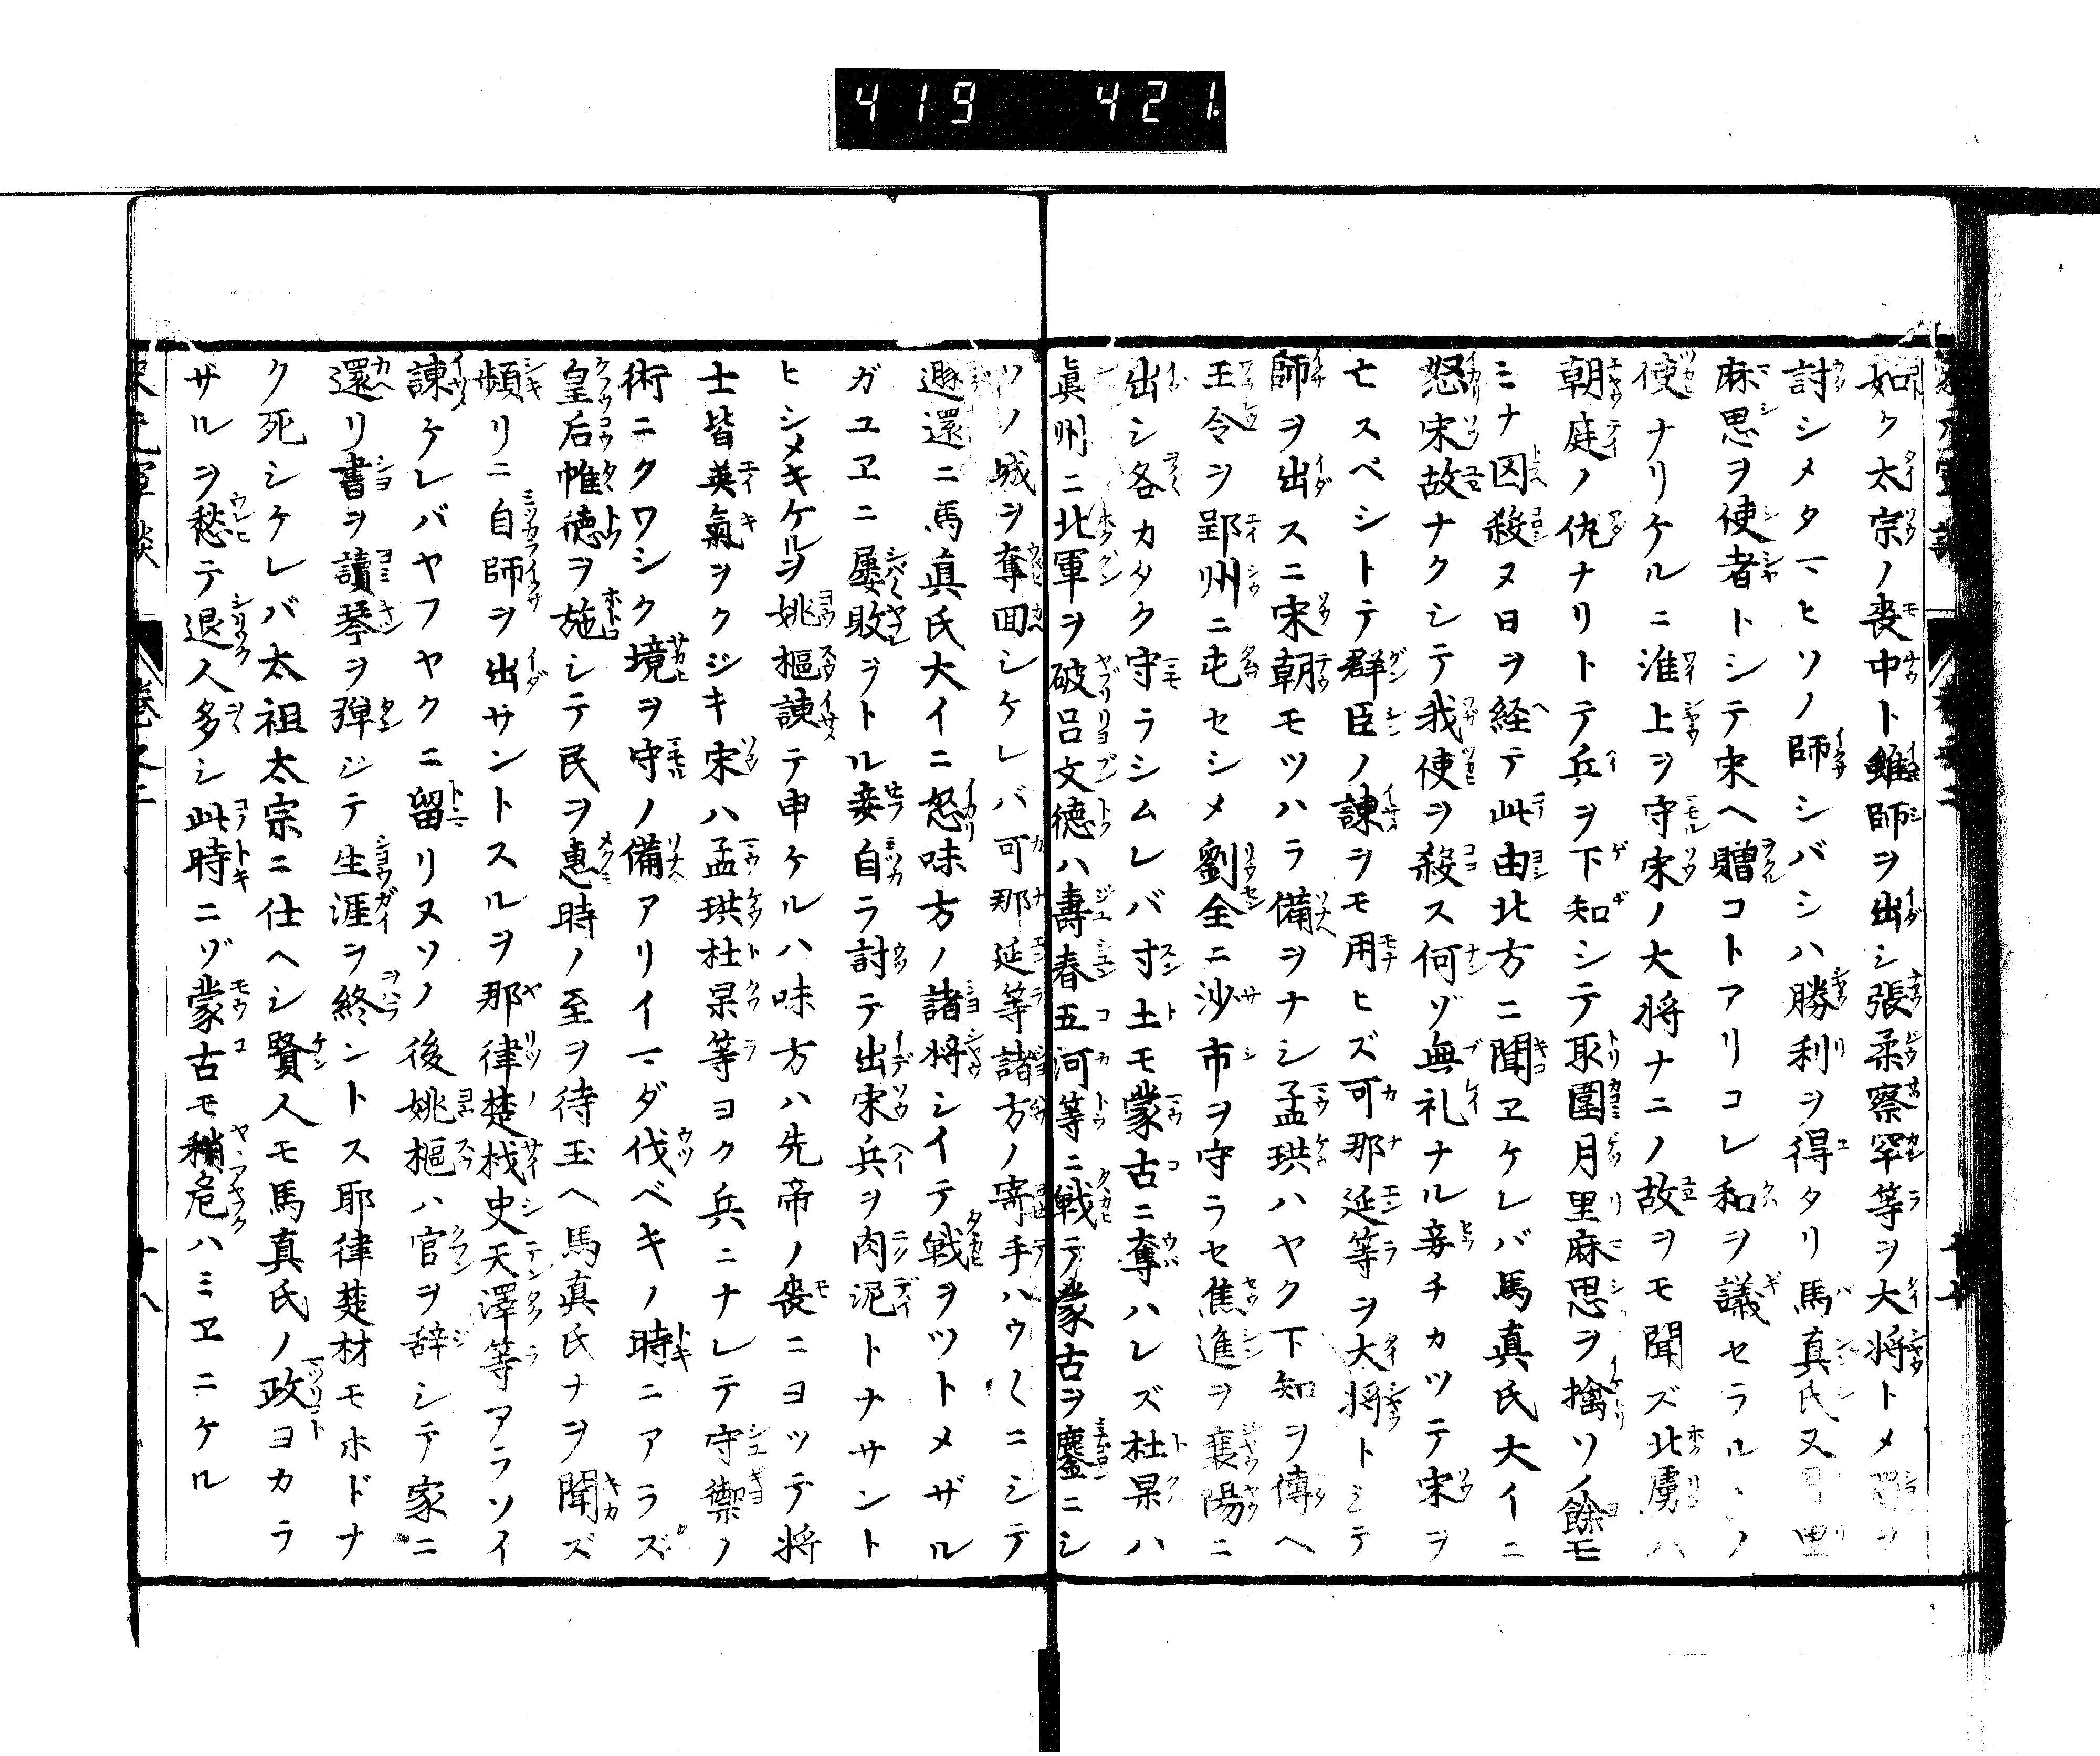 419 421
如ク太宗ノ喪中ト雖師ヲ出シ張柔察罕等ヲ大将トメ蜀ヲ
討シメタマヒソノ師シバシハ勝利ヲ得タリ馬真氏又月里
麻思ヲ使者トシテ宋ヘ贈コトアリコレ和ヲ議セラルヽノ
使ナリケルニ淮上ヲ守宋ノ大将ナニノ故ヲモ聞ズ北虜ハ
朝庭ノ仇ナリトテ兵ヲ下知シテ取圍月里麻思ヲ擒ソノ餘モ
ミナ囚殺ヌ日ヲ経テ此由北方ニ聞ヱケレバ馬真氏大イニ
怒宋故ナクシテ我使ヲ殺ス何ゾ無礼ナル妾チカツテ宋ヲ
亡スベシトテ群臣ノ諫ヲモ用ヒズ可那延等ヲ大将トシテ
師ヲ出スニ宋朝モツハラ備ヲナシ孟珙ハヤク下知ヲ傳ヘ
王令ヲ郢州ニ屯セシメ劉全ニ沙市ヲ守ラセ焦進ヲ襄陽ニ
出シ各カタク守ラシムレバ寸土モ蒙古ニ奪ハレズ杜杲ハ
真州ニ北軍ヲ破呂文徳ハ壽春五河等ニ戦テ蒙古ヲ鏖ニシ
ソノ城ヲ奪回シケレバ可那延等諸方ノ寄手ハウ〱ニシテ
遯還ニ馬真氏大イニ怒味方ノ諸将シイテ戦ヲツトメザル
ガユヱニ屡敗ヲトル妾自ラ討テ出宋兵ヲ肉泥トナサント
ヒシメキケルヲ姚樞諌テ申ケルハ味方ハ先帝ノ喪ニヨツテ将
士皆英氣ヲクジキ宋ハ孟珙杜杲等ヨク兵ニナレテ守禦ノ
術ニクワシク境ヲ守ノ備アリイマダ伐ベキノ時ニアラズ
皇后帷徳ヲ施シテ民ヲ惠時ノ至ヲ待玉ヘ馬真氏ナヲ聞ズ
頻リニ自師ヲ出ザントスルヲ那律楚材史天澤等アラソイ
諌ケレバヤフヤクニ留リヌソノ後姚樞ハ官ヲ辞シテ家ニ
還リ書ヲ讀琴ヲ弾ジテ生涯ヲ終ントス耶律楚材モホドナ
ク死シケレバ太祖太宗ニ仕ヘシ賢人モ馬真氏ノ政ヨカラ
ザルヲ愁テ退人多シ此時ニゾ蒙古モ稍危ハミヱニケル